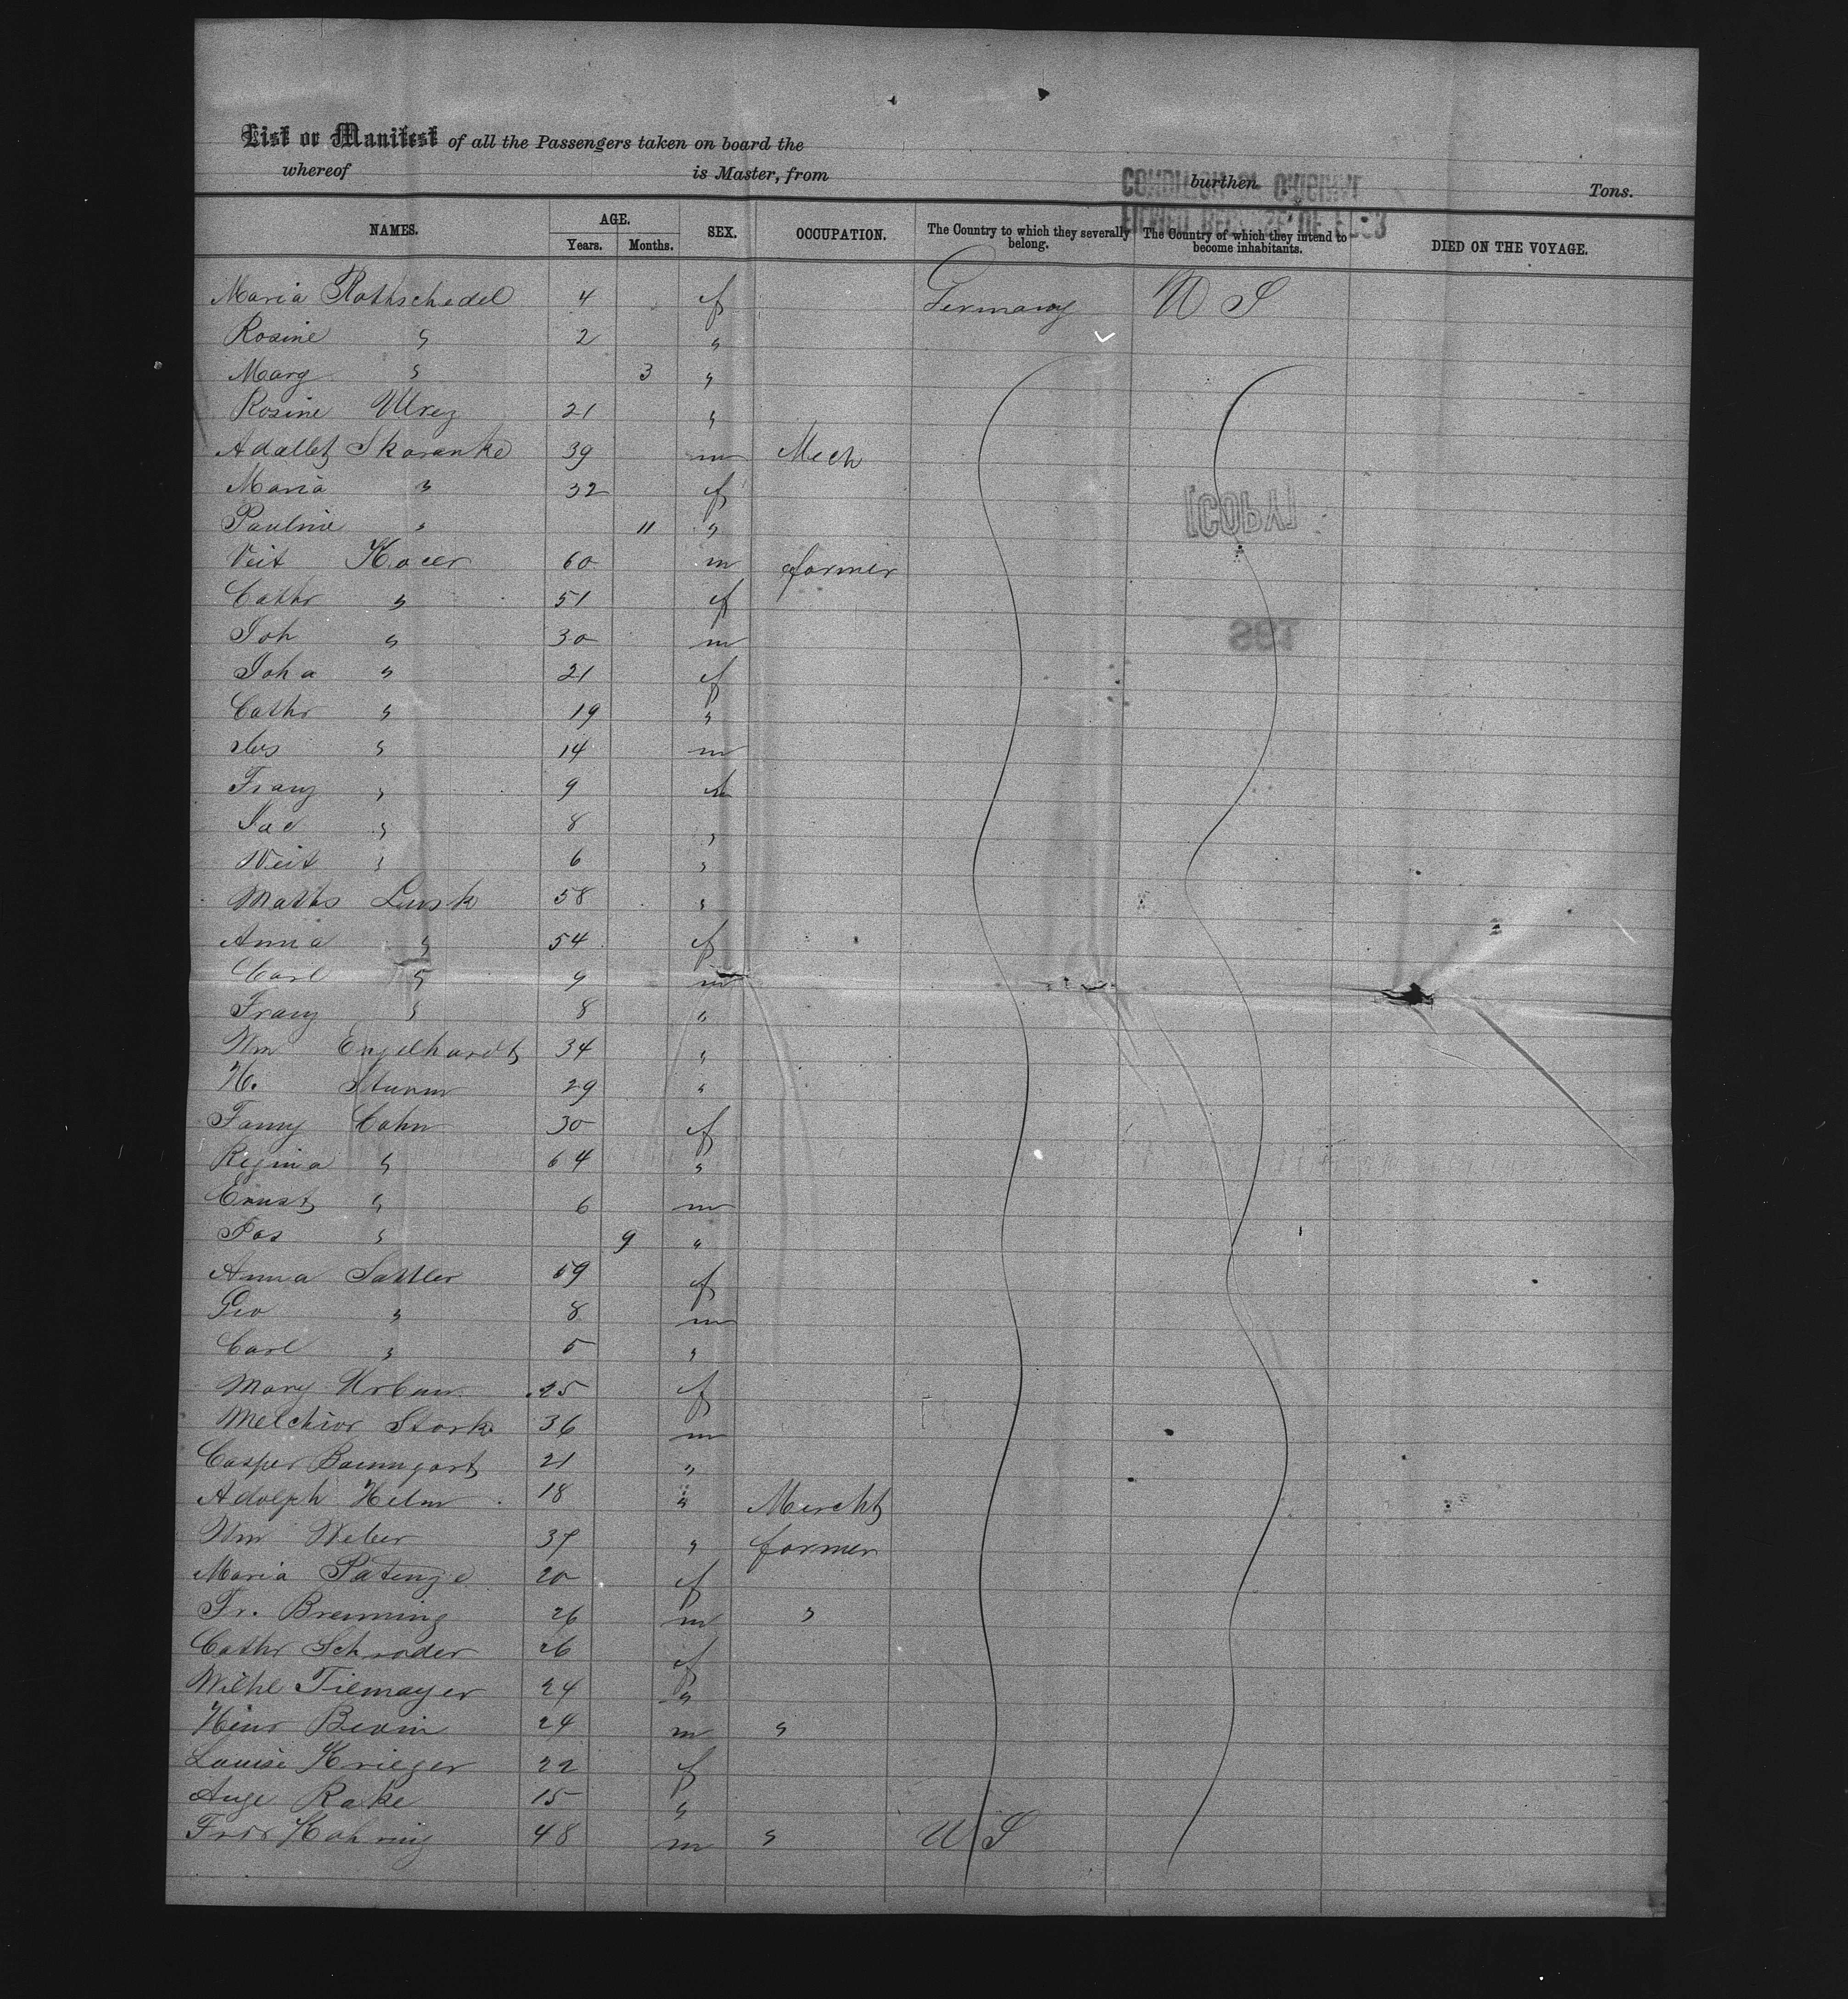 List or Manifest of all the Passengers taken on board the
whereof is Master, from burthen Tons.
NAMES. AGE. SEX. OCCUPATION. The Country to which they severally belong. The Country of which they intend to become inhabitants. DIED ON THE VOYAGE.
Years. Months.
Maria Rothschedel 4 f Germany U S
Rosine " 2 "
Marg " 3 "
Rosine 21 "
Skoranke 39 m Mech
Maria " 32 f
Pauline " 11 "
Veit Kocer 60 m farmer
Cathr " 51 f
Joh " 30 m
Joha " 21 f
Cathr " 19 "
" 14 m
Franz " 9
Jac " 8 "
Veit " 6 "
Maths Lusk 58 "
Anna " 54 f
Carl " 9 m
Franz " 8 "
Wm Engelhardt 34 "
H. Sturm 29 "
Fanny Cahn 30 f
Regina " 64 "
Ernst " 6 m
Jos " 9 "
Anna Sattler 59 f
Geo " 8 m
Carl " 5 "
Mary Urban 25 f
Melchior Stork 36 m
Casper Baumgart 21 "
Adolph Helm 18 " Mercht
Wm Weber 37 " farmer
Maria Patenge 20 f
Fr. Brenning 26 m "
Cathr Schroder 26 f
Wilhe Tiemayer 24 "
Heinr Bevin 24 m "
Louise Krieger 22 f
Auge Rake 15 "
Frdr Kohring 48 m " U S
[COPY]